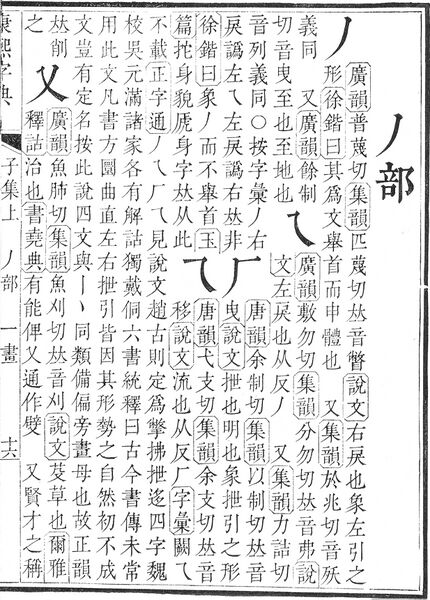 丿部
丿
廣韻普蔑切集韻匹蔑切𠀤音瞥說文右戾也象左引之
形徐鍇曰其爲文舉首而申體也 又集韻於兆切音殀
義同 又廣韻餘制
切音曳至也至地也
乀
廣韻敷勿切集韻分勿切𠀤音弗說
文左戾也从反丿 又集韻力詰切
音列義同○按字彙丿右
戾譌左乀左戾譌右𠀤非
𠂆
唐韻余制切集韻以制切𠀤音
曳說文抴也明也象抴引之形
徐鍇曰象丿而不舉首玉
篇拕身貌虒身字𠀤从此
乁
唐韻弋支切集韻余支切𠀤音
移說文流也从反𠂆字彙闕乁
不載正字通丿乀𠂆乁見說文趙古則定爲撆拂抴迻四字魏
校吳元滿諸家各有解詁獨戴侗六書統釋曰古今書傳未常
用此文凡書方圜曲直左右抴引皆因其形勢之自然初不成
文豈有定名按此說四文與丨丶同類備偏旁畫母也故正韻
𠀤削
之
乂
廣韻魚肺切集韻魚刈切𠀤音刈說文芟草也爾雅
釋詁治也書堯典有能俾乂通作 又賢才之稱
康熙字典 子集上 丿部 一畫 十六